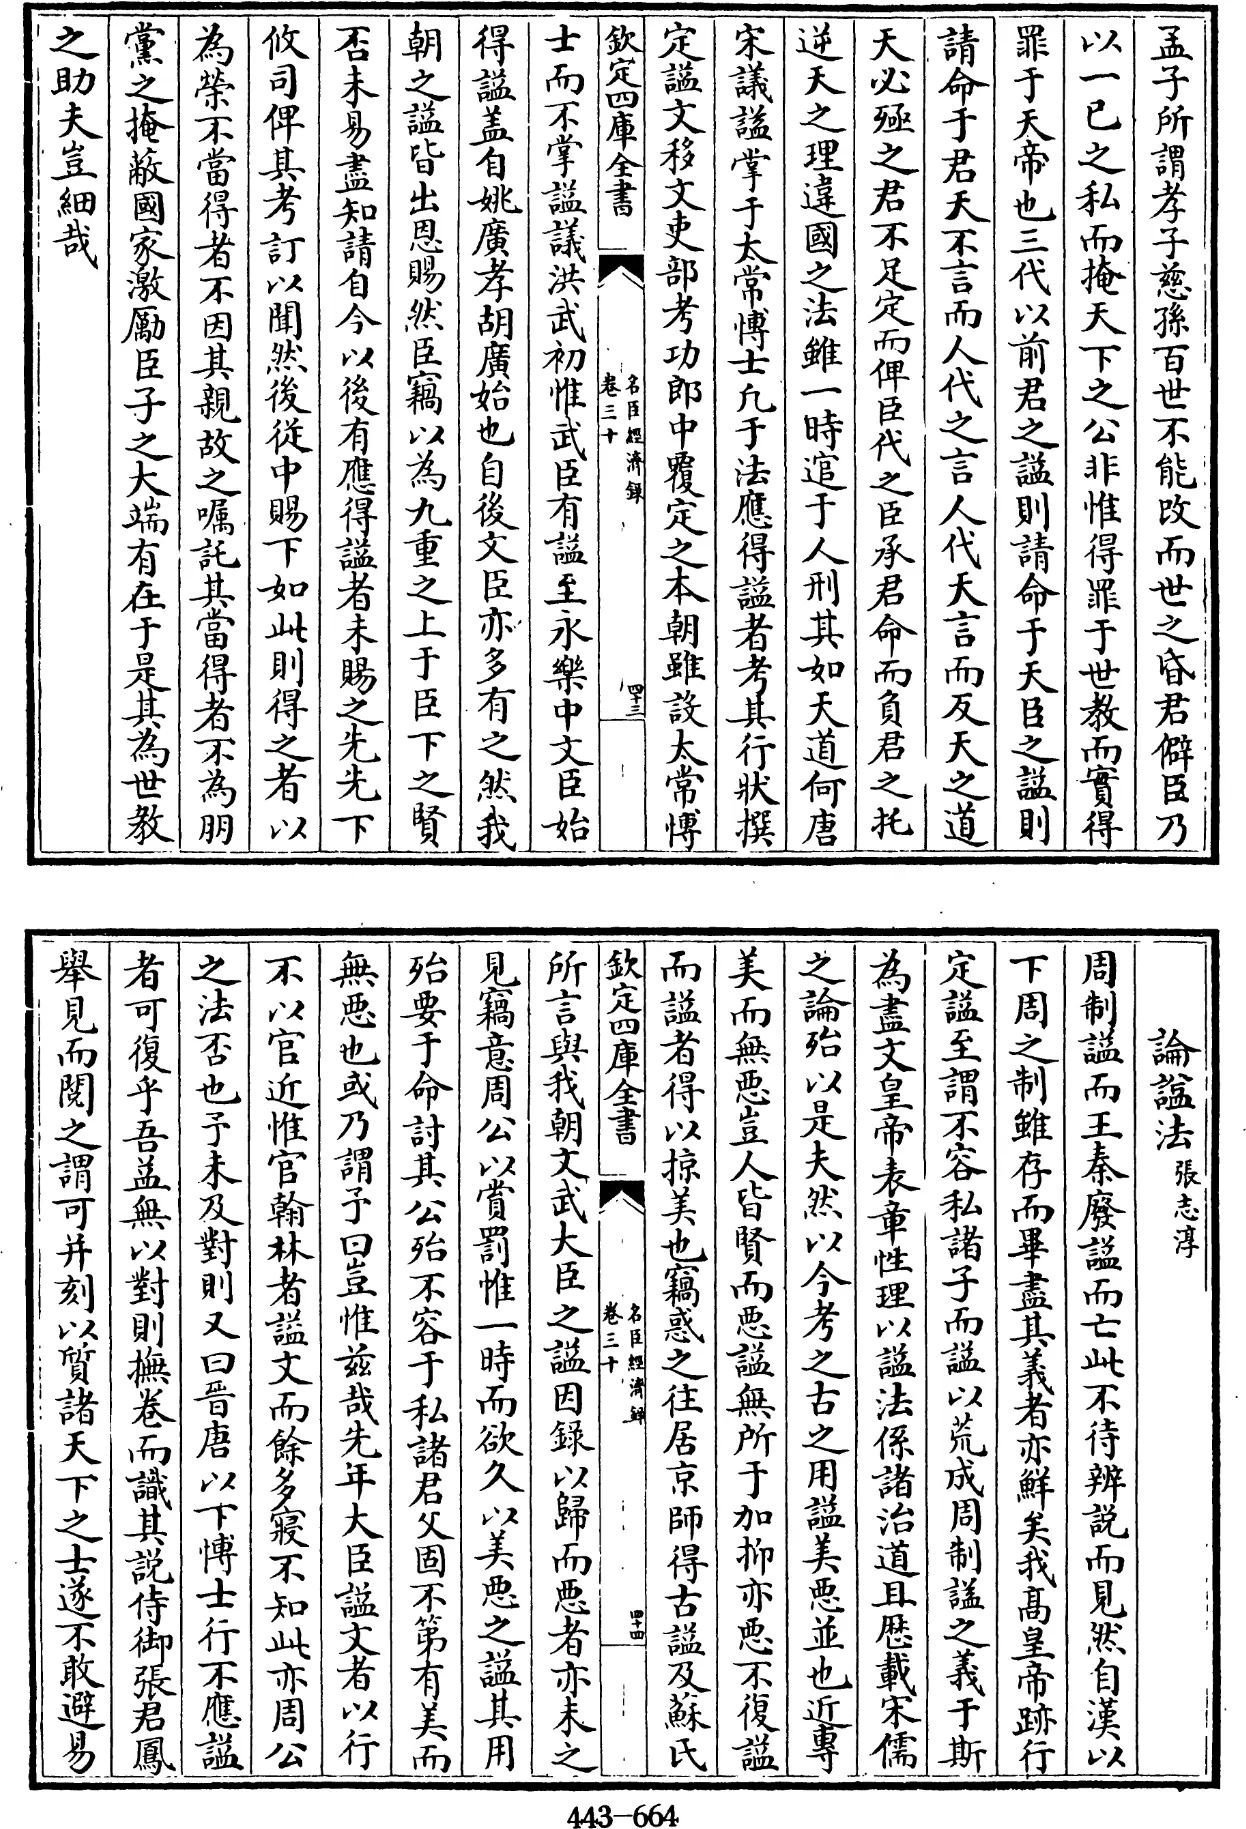 孟子所謂孝子慈孫百世不能改而世之昏君僻臣乃
以一已之私而掩天下之公非惟得罪于世教而實得
罪于天帝也三代以前君之謚則請命于天臣之謚則
請命于君天不言而人代之言人代天言而反天之道
天必殛之君不足定而俾臣代之臣承君命而負君之托
逆天之理違國之法雖一時逭于人刑其如天道何唐
宋議謚掌于太常博士凡于法應得謚者考其行狀撰
定謚文移文吏部考功郎中覆定之本朝雖設太常博
欽定四庫全書
名臣經濟録
卷三十
四十三
士而不掌謚議洪武初惟武臣有謚至永樂中文臣始
得謚盖自姚廣孝胡廣始也自後文臣亦多有之然我
朝之謚皆出恩賜然臣竊以為九重之上于臣下之賢
否未易盡知請自今以後有應得謚者未賜之先先下
攸司俾其考訂以聞然後從中賜下如此則得之者以
為榮不當得者不因其親故之囑託其當得者不為朋
黨之掩蔽國家激厲臣子之大端有在于是其為世教
之助夫豈細哉
論謚法張志淳
周制謚而王秦廢謚而亡此不待辨説而見然自漢以
下周之制雖存而畢盡其義者亦鮮矣我髙皇帝跡行
定謚至謂不容私諸子而謚以荒成周制謚之義于斯
為盡文皇帝表章性理以謚法係諸治道且歴載宋儒
之論殆以是夫然以今考之古之用謚美惡並也近專
美而無惡豈人皆賢而惡謚無所于加抑亦惡不復謚
而謚者得以掠美也竊惑之往居京師得古謚及蘇氏
欽定四庫全書
名臣經濟録
卷三十
四十四
所言與我朝文武大臣之謚因録以歸而惡者亦未之
見竊意周公以賞罰惟一時而欲久以美惡之謚其用
殆要于命討其公殆不容于私諸君父固不第有美而
無惡也或乃謂予曰豈惟兹哉先年大臣謚文者以行
不以官近惟官翰林者謚文而餘多寢不知此亦周公
之法否也予未及對則又曰晉唐以下博士行不應謚
者可復乎吾益無以對則撫卷而識其説侍御張君鳳
舉見而閲之謂可并刻以質諸天下之士遂不敢避易
443-664